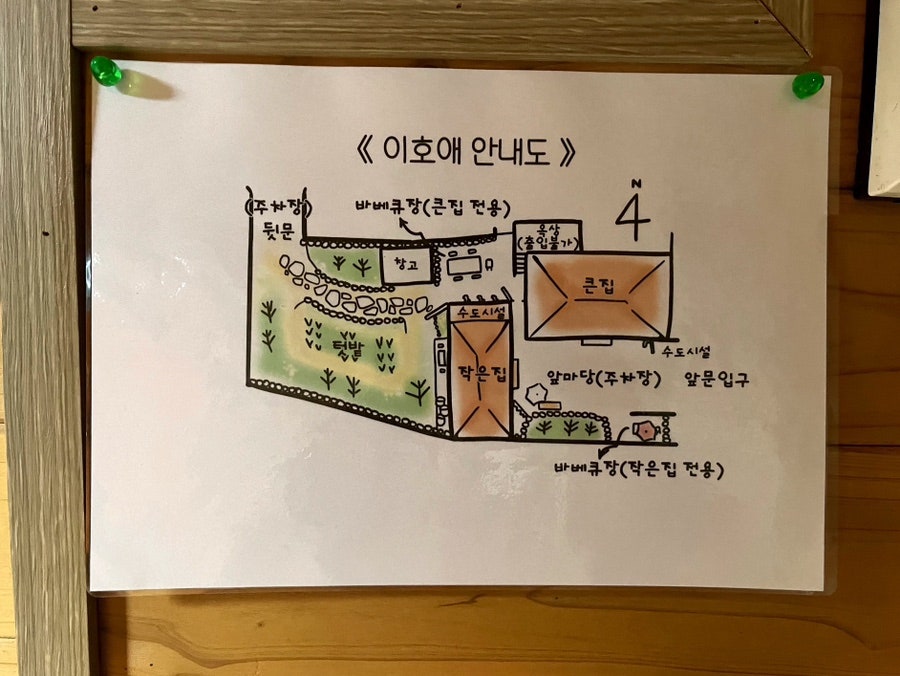 《 이호애 안내도 》
(주차장)
뒷문
바베큐장(큰집 전용)
N
옥상
(출입불가)
창고
큰집
수도시설
수도시설
텃밭
작은집
앞마당(주차장) 앞문입구
바베큐장(작은집 전용)